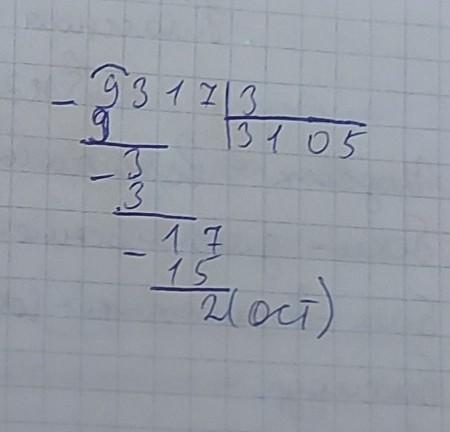 - 9317 | 3
9 | 3105
- 3
3
- 17
15
2 (ост)